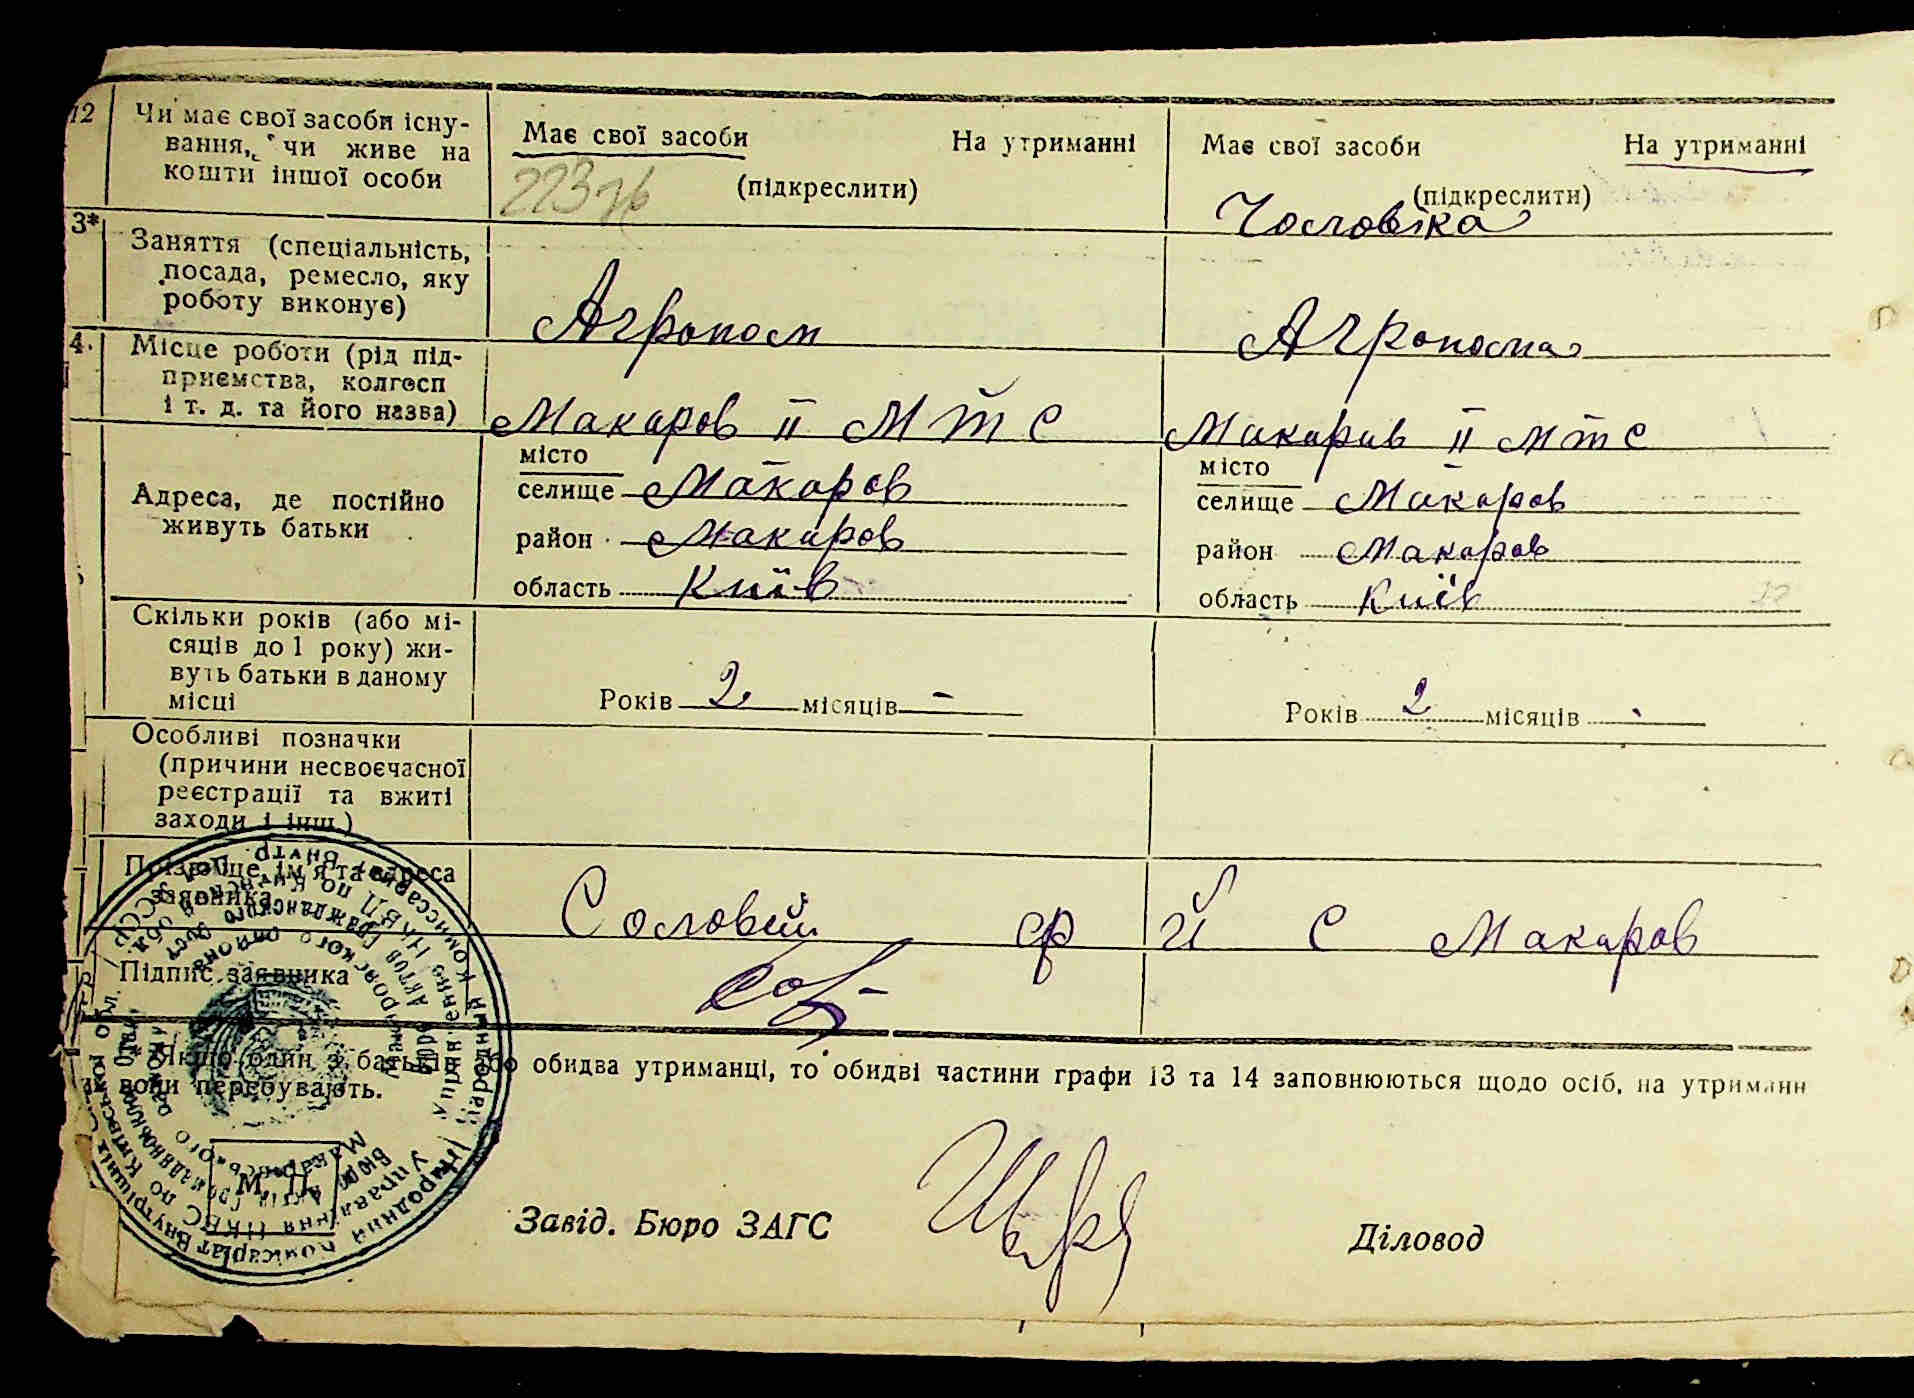 12 Чи має свої засоби існу-
вання, чи живе на
кошти іншої особи
Має свої засоби На утриманні
(підкреслити)
Має свої засоби На утриманні
(підкреслити)
Чоловіка
3* Заняття (спеціальність,
посада, ремесло, яку
роботу виконує)
Агроном
Агронома
4. Місце роботи (рід під-
приємства, колгосп
і т. д. та його назва)
Макаров II МТС
Макарив II МТС
Адреса, де постійно
живуть батьки
місто
селище Макаров
район Макаров
область Київ
місто
селище Макаров
район Макаров
область Київ
Скільки років (або мі-
сяців до 1 року) жи-
вуть батьки в даному
місці
Років 2 місяців -
Років 2 місяців -
Особливі позначки
(причини несвоєчасної
реєстрації та вжиті
заходи і інш.)
Прізвище, ім'я та адреса
заявника
Соловей ф й с Макаров
Підпис заявника
* Якщо один з батьків або обидва утриманці, то обидві частини графи 13 та 14 заповнюються щодо осіб, на утриманн
и вони перебувають.
М. П.
Завід. Бюро ЗАГС
Діловод